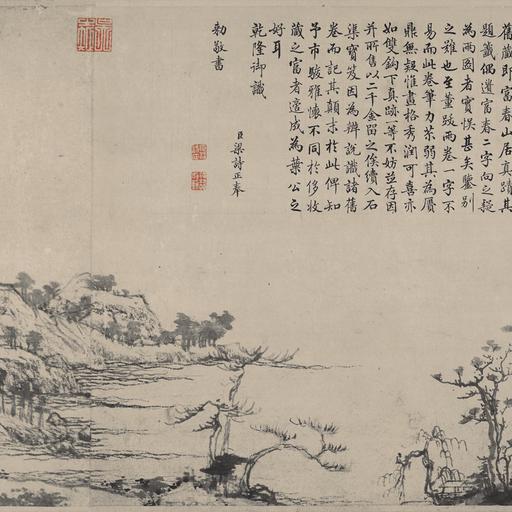 舊藏即富春山居真蹟其
題籤偶遺富春二字向之疑
為兩圖者實悞甚矣鑒別
之難也至董跋兩卷一字不
易而此卷筆力苶弱其為贗
鼎無疑惟畫格秀潤可喜亦
如雙鉤下真蹟一等不妨並存因
并所售以二千金留之俟續入石
渠寶笈因為辨說識諸舊
卷而記其顛末於此俾知
予市駿雅懷不同於侈收
藏之富者適成為葉公之
好耳
乾隆御識
臣梁詩正奉
勅敬書